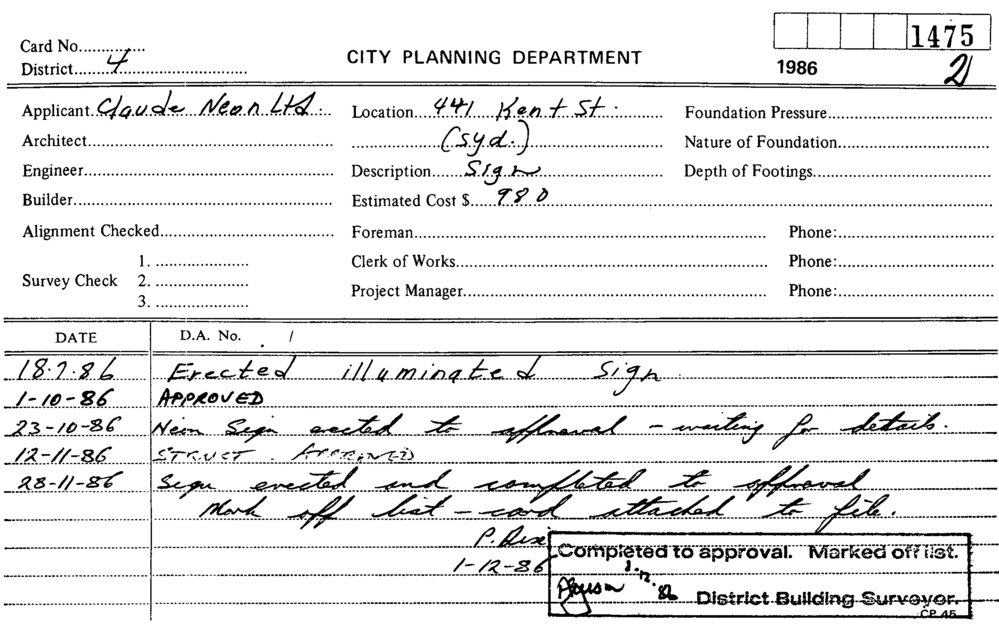 1475
Card No...............
CITY PLANNING DEPARTMENT
District........4..............................
1986 2
Applicant.Claude Neon Ltd.
Location....441 Kent St.
Foundation Pressure
Architect
(Syd.)
Nature of Foundation
Engineer
Description.......Sign
Depth of Footings
Builder
Estimated Cost $.....980
Alignment Checked
Foreman
Phone:
Survey Check
1.
2.
3.
Clerk of Works
Phone:
Project Manager
Phone:
DATE D.A. No. /
18.7.86 Erected illuminated Sign
1-10-86 APPROVED
23-10-86 Neon Sign erected to approval - waiting for details.
12-11-86 STRUCT. APPROVED
28-11-86 Sign erected and completed to approval
Mark off list - card attached to file.
P.
1-12-86
Completed to approval. Marked off list.
1.12.86
District Building Surveyor.
CP 45